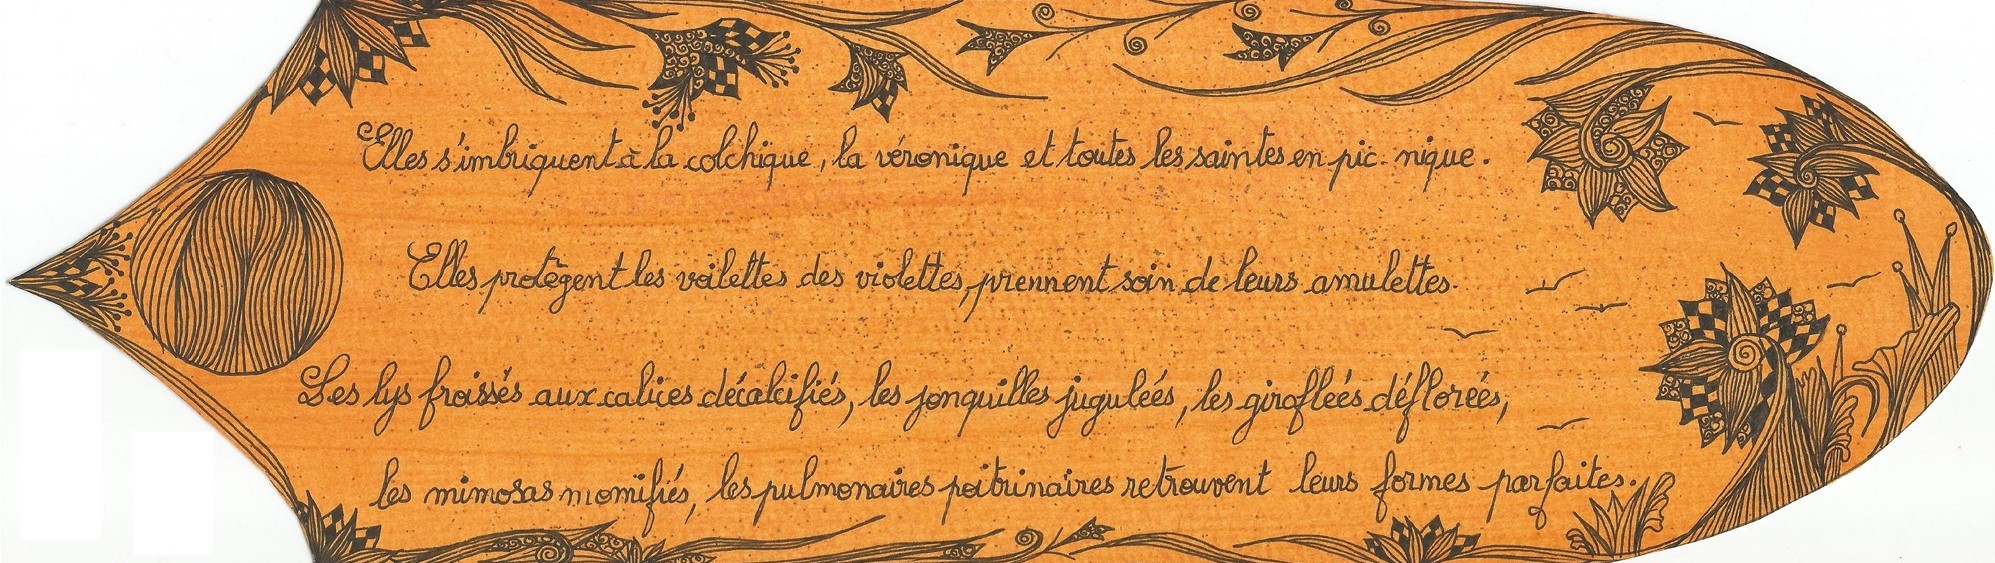 Elles s'imbriquent à la colchique, la véronique et toutes les saintes en pic-nique.
Elles protègent les voilettes des violettes, prennent soin de leurs amulettes.
Les lys froissés aux calices décalcifiés, les jonquilles jugulées, les giroflées déflorées,
les mimosas momifiés, les pulmonaires poitrinaires retrouvent leurs formes parfaites.